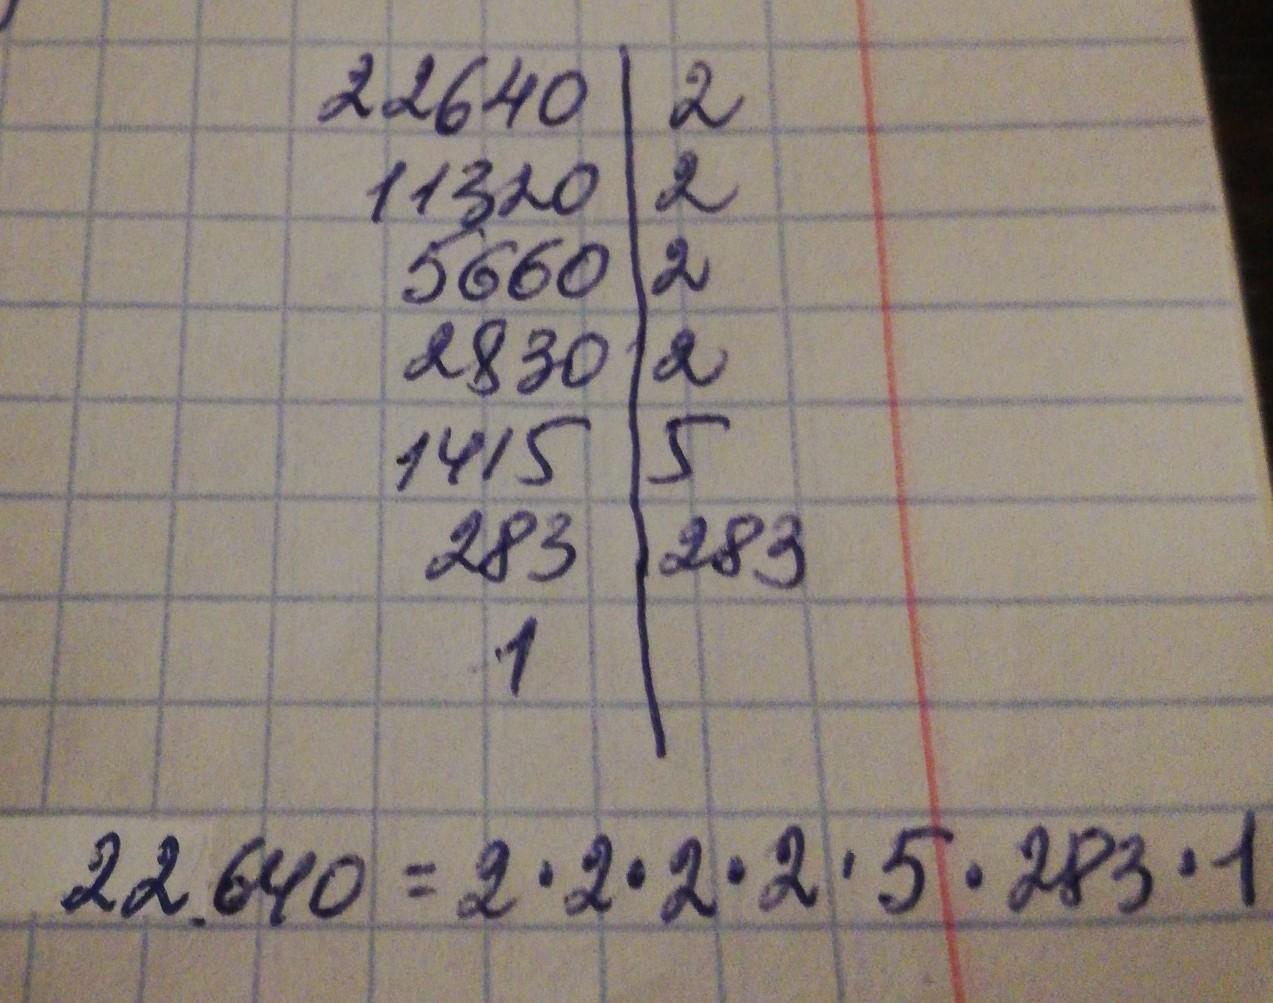 22640 | 2
11320 | 2
5660 | 2
2830 | 2
1415 | 5
283 | 283
1
22.640 = 2 · 2 · 2 · 2 · 5 · 283 · 1